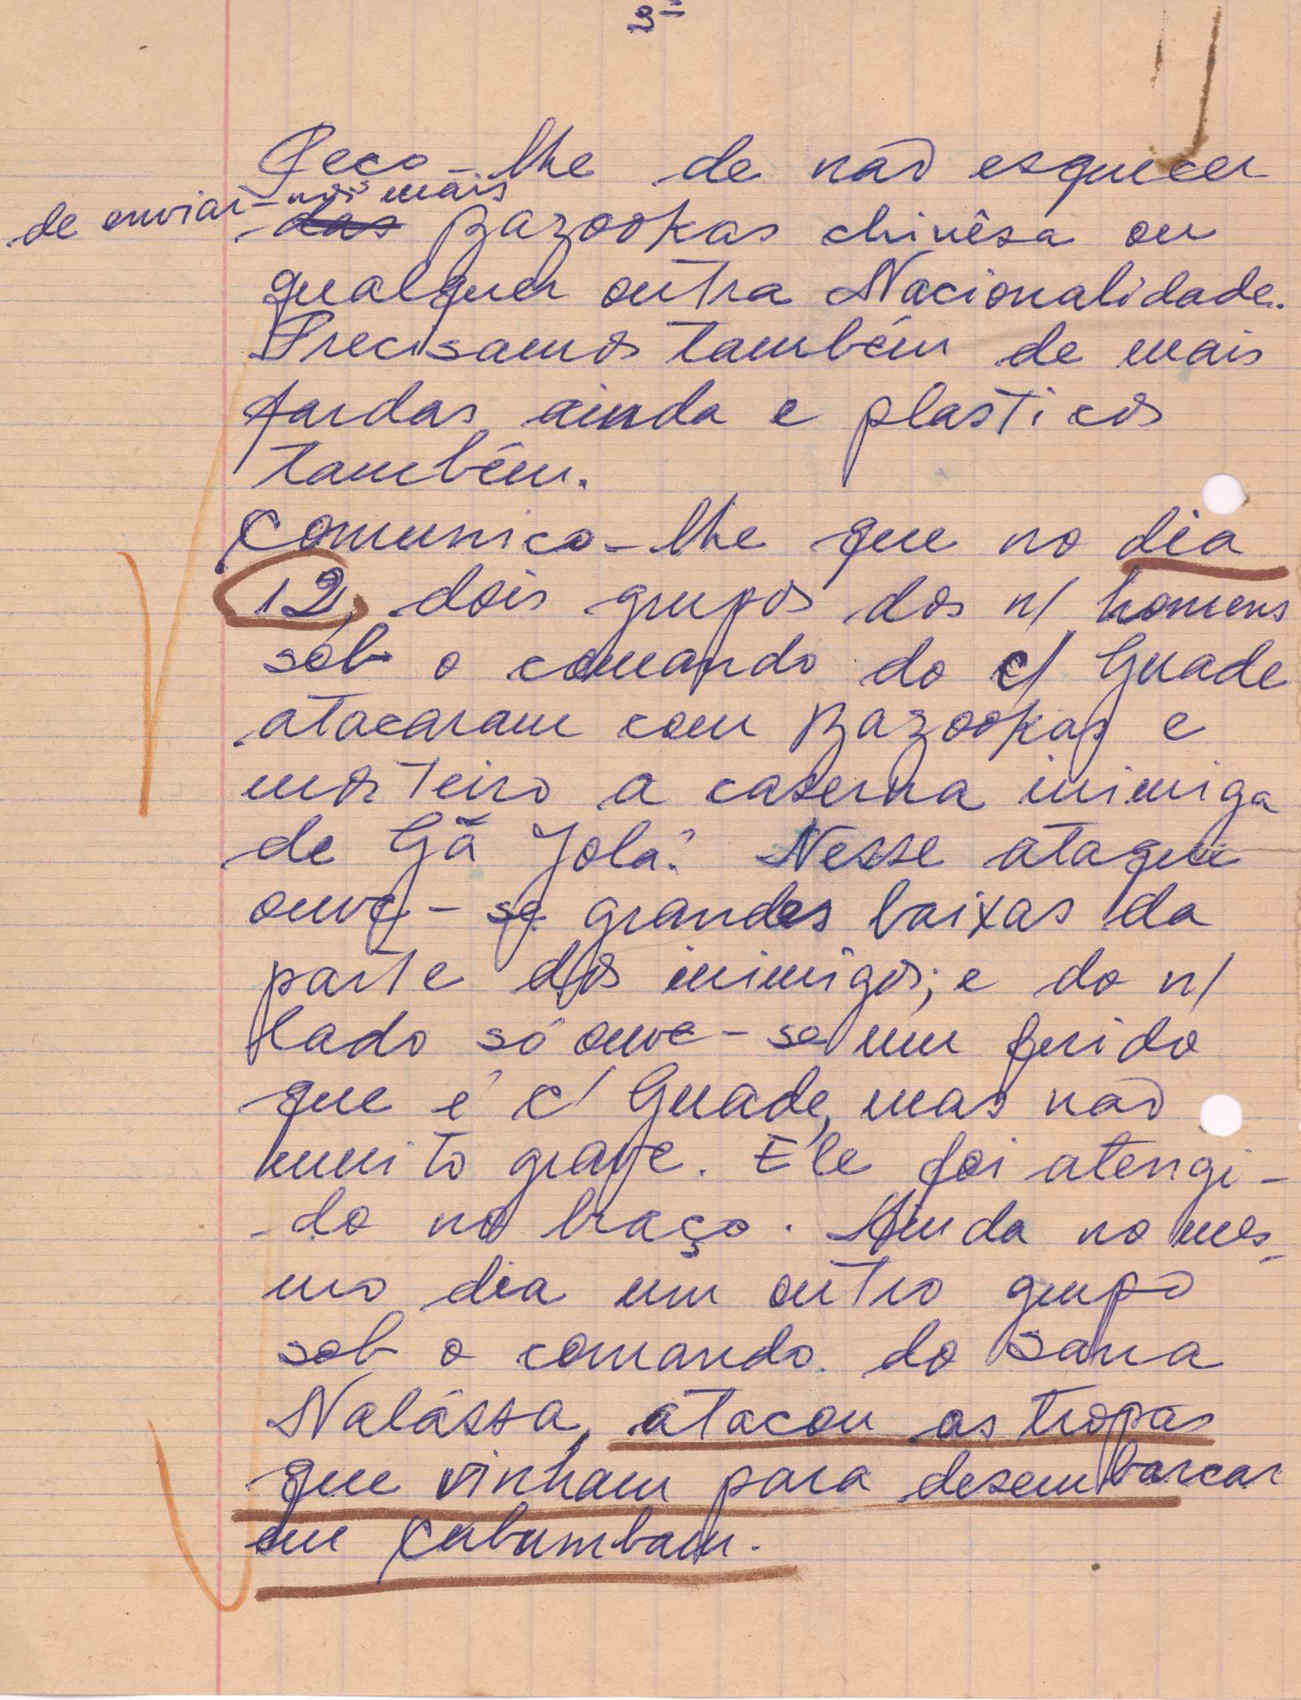 Peço-lhe de não esquecer
de enviar-nos mais
das Bazookas chinêsa ou
qualquer outra Nacionalidade.
Precisamos também de mais
fardas ainda e plasticos
também.
Comunico-lhe que no dia
12, dois grupos dos n/ homens
sob o comando do c/ Guade
atacaram com Bazookas e
morteiro a caserna inimiga
de Gã Jola. Nesse ataque
ouve-se grandes baixas da
parte dos inimigos; e do n/
lado só ouve-se um ferido
que é c/ Guade, mas não
muito grave. Ele foi atengi-
-do no braço. Ainda no mes-
mo dia um outro grupo
sob o comando do Sana
Nalássa, atacou as tropas
que vinham para desembarcar
em Cubumbam.